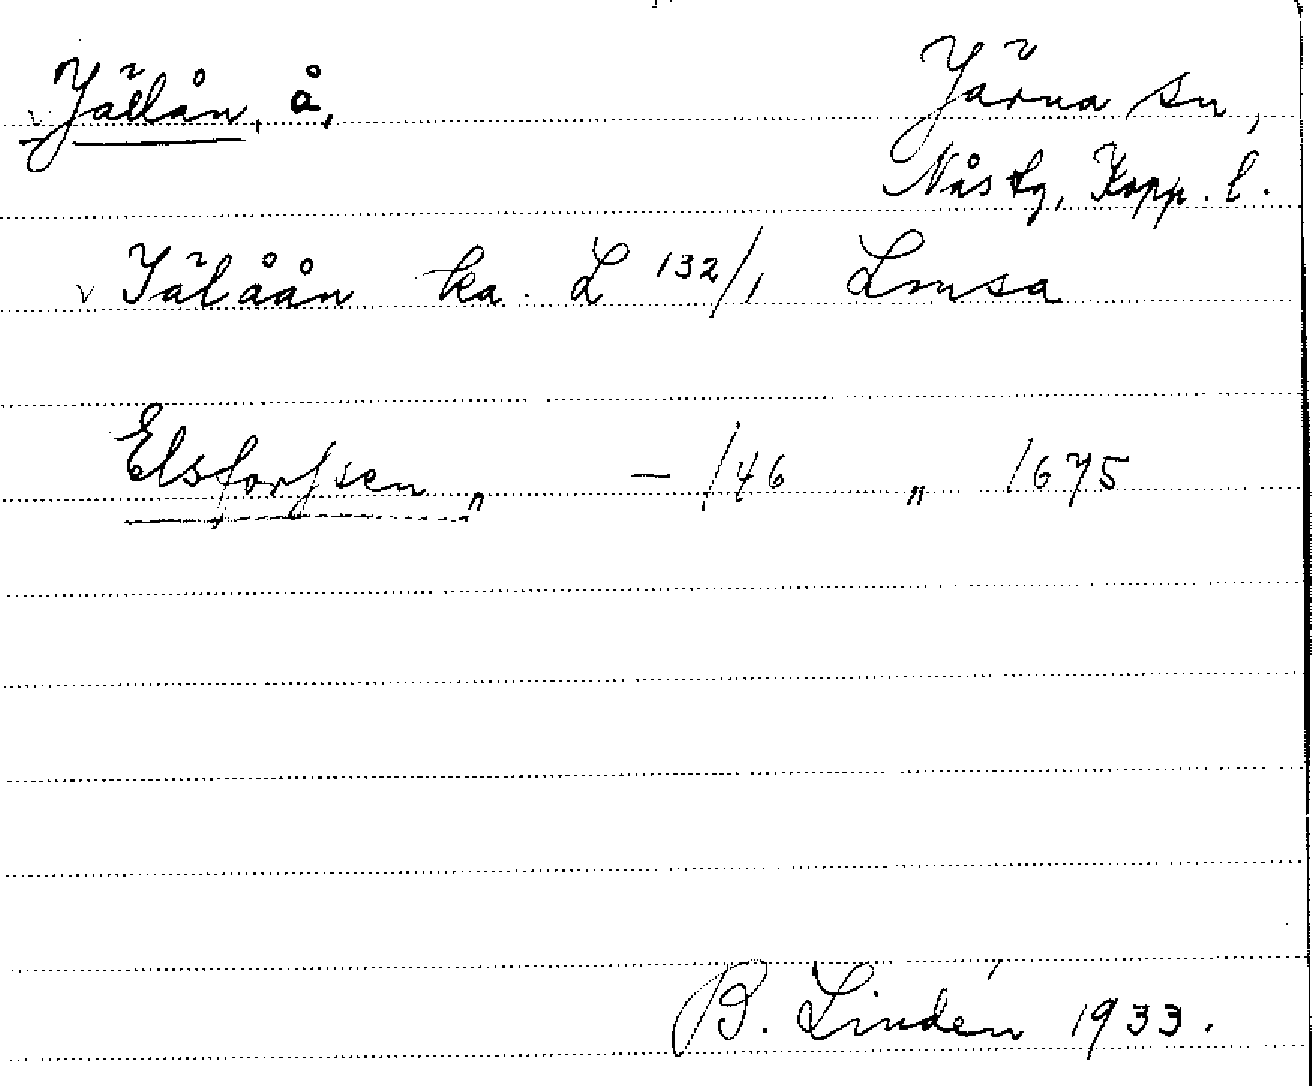 Jällån, å,
Järna sn,
Nås tg, Kopp. l.
Jälåån ka. L 132/1 Lmsa
Elsforssen „ — /46 „ 1675
B. Lindén 1933.